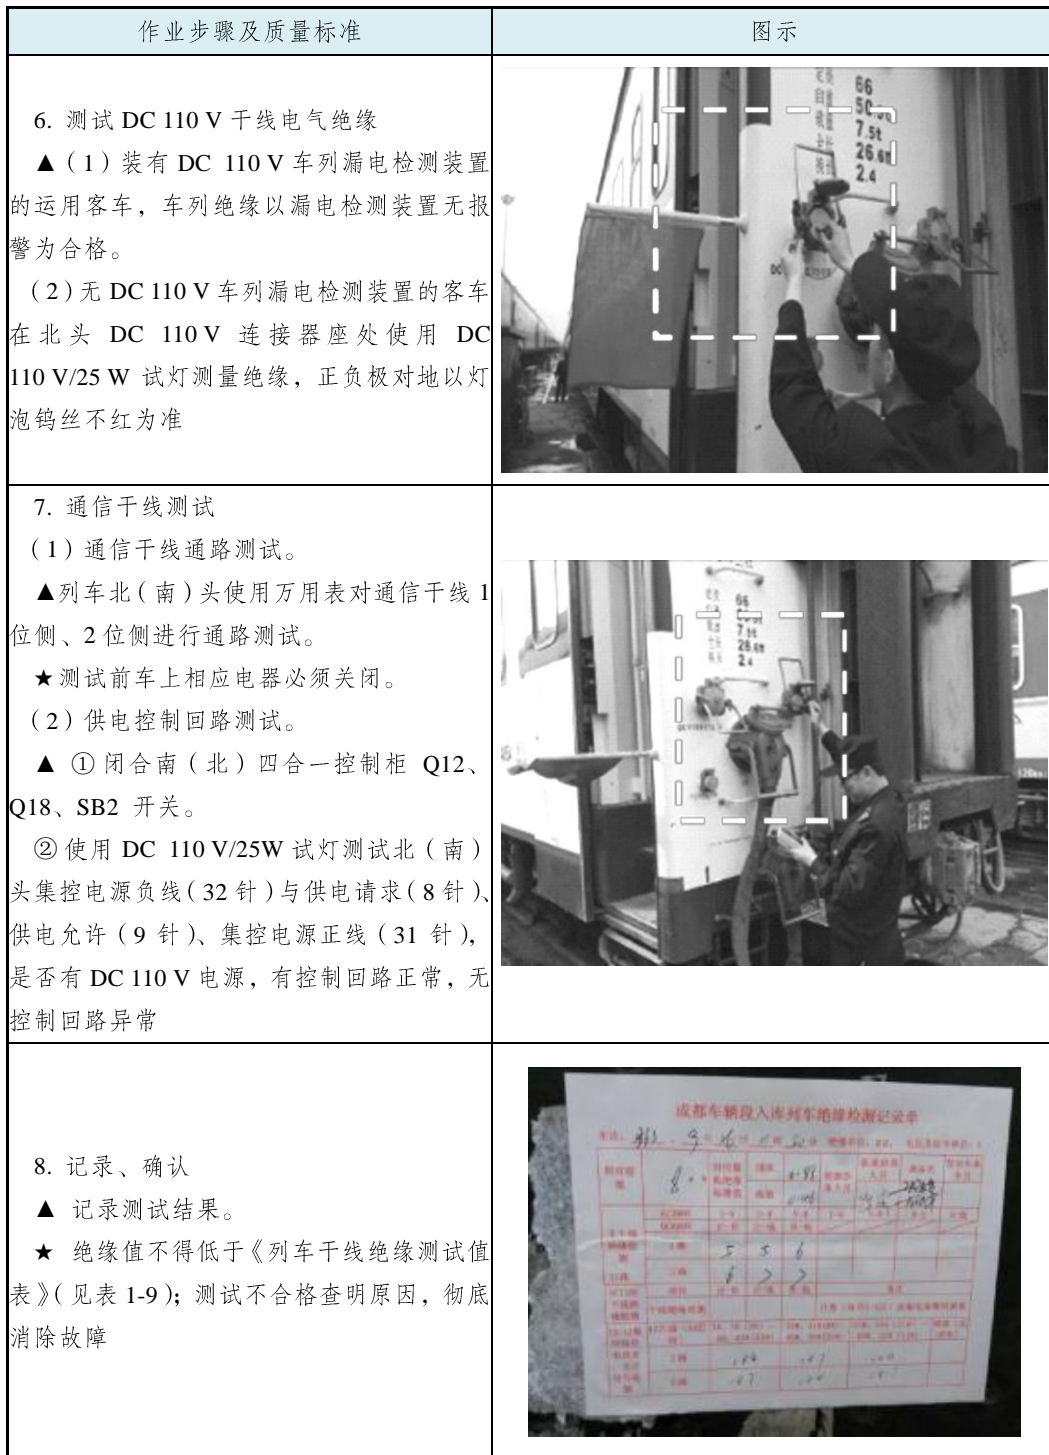 作业步骤及质量标准
图示
6. 测试 DC 110 V 干线电气绝缘
▲（1）装有 DC 110 V 车列漏电检测装置
的运用客车，车列绝缘以漏电检测装置无报
警为合格。
（2）无 DC 110 V 车列漏电检测装置的客车
在北头 DC 110 V 连接器座处使用 DC
110 V/25 W 试灯测量绝缘，正负极对地以灯
泡钨丝不红为准
66
7.5t
26.6m
2.4
DC
7. 通信干线测试
（1）通信干线通路测试。
▲列车北（南）头使用万用表对通信干线 1
位侧、2 位侧进行通路测试。
★测试前车上相应电器必须关闭。
（2）供电控制回路测试。
▲ ① 闭合南（北）四合一控制柜 Q12、
Q18、SB2 开关。
② 使用 DC 110 V/25W 试灯测试北（南）
头集控电源负线（32 针）与供电请求（8 针）、
供电允许（9 针）、集控电源正线（31 针），
是否有 DC 110 V 电源，有控制回路正常，无
控制回路异常
66
7.5t
26.6m
2.4
8. 记录、确认
▲ 记录测试结果。
★ 绝缘值不得低于《列车干线绝缘测试值
表》（见表 1-9）；测试不合格查明原因，彻底
消除故障
成都车辆段入库列车绝缘检测记录单